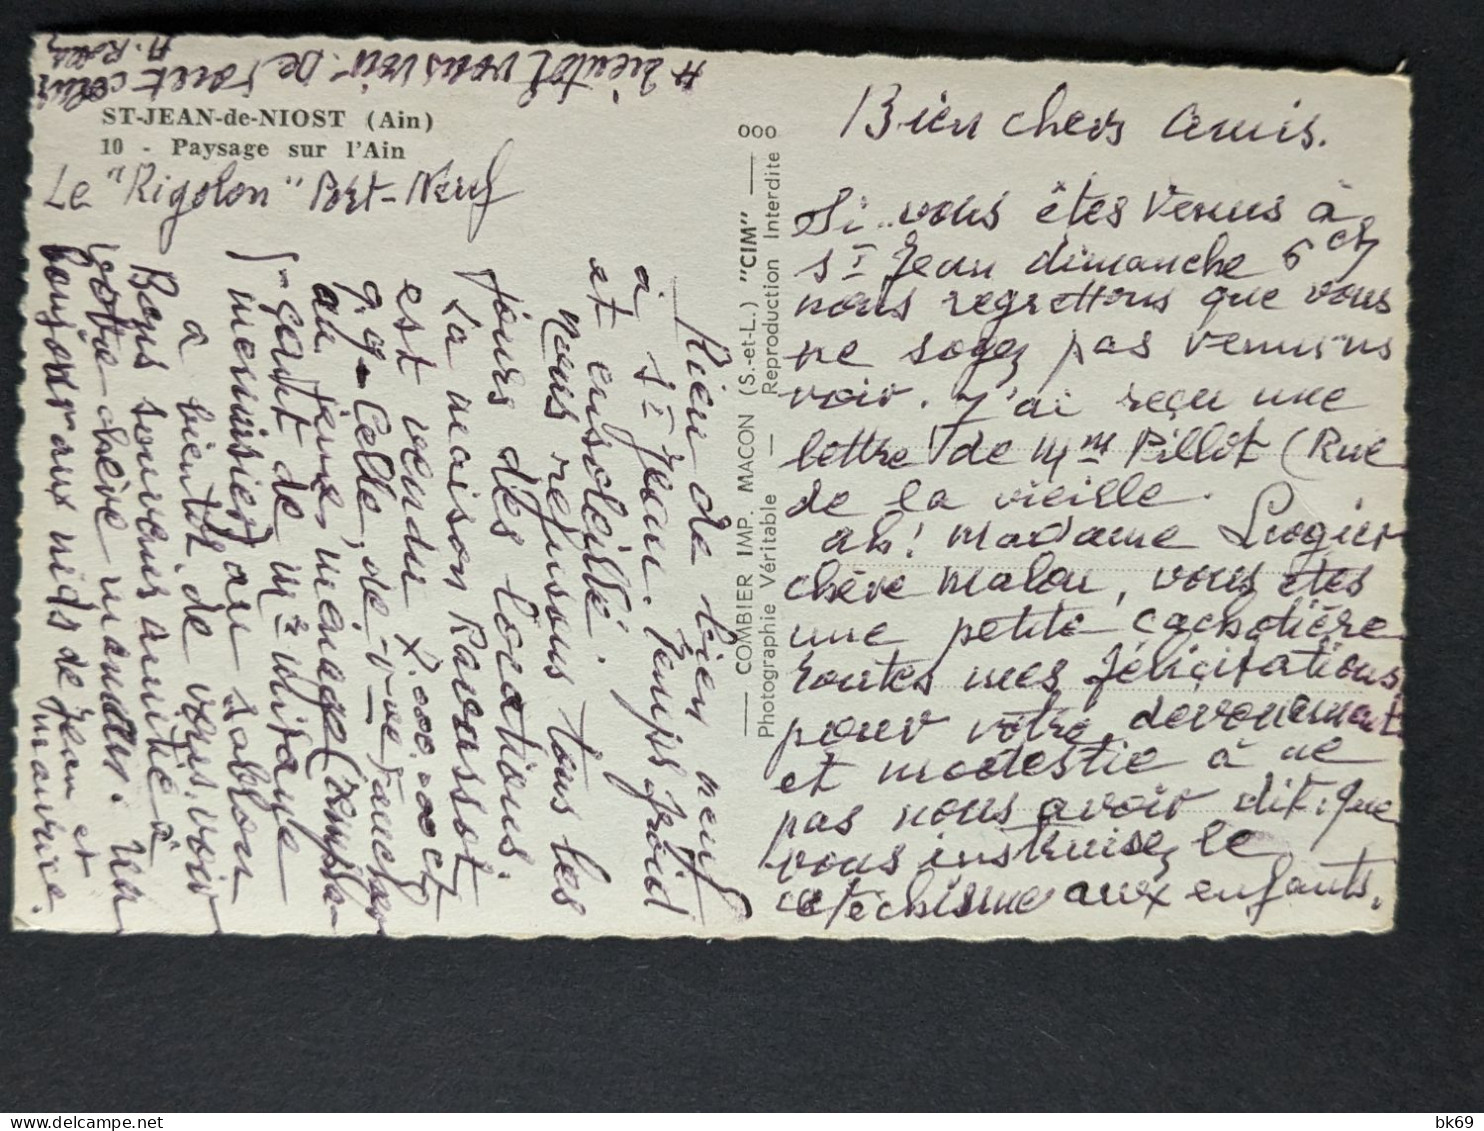 ST-JEAN-de-NIOST (Ain)
10 - Paysage sur l'Ain
Le "Rigolon" Port-Neuf
COMBIER IMP. MACON (S.-et-L.) "CIM"
Photographie Véritable — Reproduction Interdite
Bien chers Amis.
Si vous êtes venus à
St Jean dimanche 6 ct
nous regrettons que vous
ne soyez pas venus ns
voir. J'ai reçu une
lettre de Mme Pillot (Rue
de la vieille.
ah! Madame Laugier
chère malou, vous êtes
une petite cachotière
toutes mes félicitations
pour votre dévouement
et modestie à ne
pas nous avoir dit que
vous instruisez le
catéchisme aux enfants.
Rien de bien neuf
à St Jean. Temps froid
et ensoleillé.
Nous refusons tous les
jours des locations.
La maison Ravassot
est vendu
Celle de
au jeune ménage (rempla-
çant de Me
menuisier) au Sablon
à bientôt de vous voir
Bons souvenirs amitié à
votre chère maman. Un
bonjour aux nids de Jean et
maurice.
A bientôt vous voir. De tout cœur